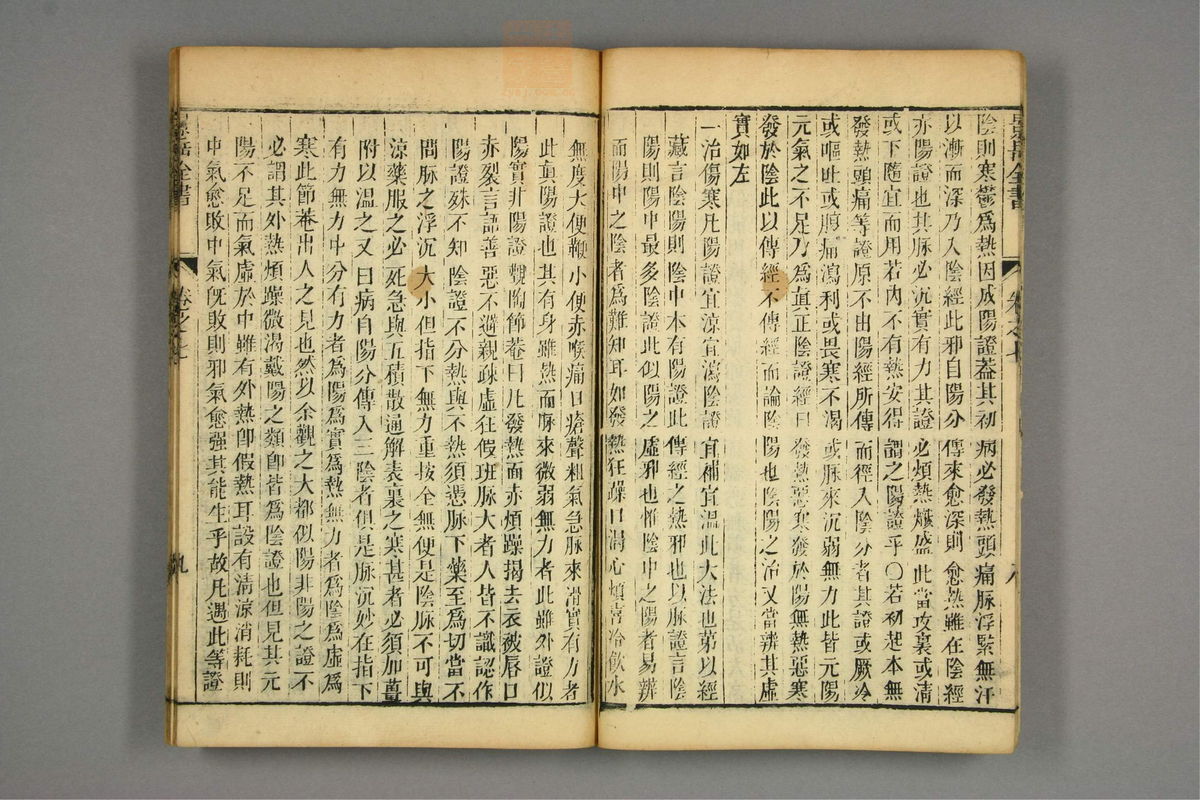 景岳全書
卷之七
八
陰則寒鬱爲熱因成陽證蓋其初病必發熱頭痛脈浮緊無汗
以漸而深乃入陰經此邪自陽分傳來愈深則愈熱雖在陰經
亦陽證也其脈必沉實有力其證必煩熱熾盛此當攻裏或清
或下隨宜而用若內不有熱安得謂之陽證乎○若初起本無
發熱頭痛等證原不由陽經所傳而徑入陰分者其證或厥冷
或嘔吐或腹痛瀉利或畏寒不渴或脈來沉弱無力此皆元陽
元氣之不足乃爲眞正陰證經曰發熱惡寒發於陽無熱惡寒
發於陰此以傳經不傳經而論陰陽也陰陽之治又當辨其虛
實如左
一治傷寒凡陽證宜涼宜瀉陰證宜補宜溫此大法也第以經
藏言陰陽則陰中本有陽證此傳經之熱邪也以脈證言陰
陽則陽中最多陰證此似陽之虛邪也惟陰中之陽者易辨
而陽中之陰者爲難知耳如發熱狂躁口渴心煩喜冷飲水
無度大便鞕小便赤喉痛口瘡聲粗氣急脈來滑實有力者
此眞陽證也其有身雖熱而脈來微弱無力者此雖外證似
陽實非陽證觀陶節菴曰凡發熱面赤煩躁揭去衣被唇口
赤裂言語善惡不避親疎虛狂假班脈大者人皆不識認作
陽證殊不知陰證不分熱與不熱須憑脈下藥至爲切當不
問脈之浮沉大小但指下無力重按全無便是陰脈不可與
涼藥服之必死急與五積散通解表裏之寒甚者必須加薑
附以溫之又曰病自陽分傳入三陰者俱是脈沉妙在指下
有力無力中分有力者爲陽爲實爲熱無力者爲陰爲虛爲
寒此節菴出人之見也然以余觀之大都似陽非陽之證不
必謂其外熱煩躁微渴戴陽之類卽皆爲陰證也但見其元
陽不足而氣虛於中雖有外熱卽假熱耳設有清涼消耗則
中氣愈敗中氣旣敗則邪氣愈强其能生乎故凡遇此等證
景岳全書
卷之七
九